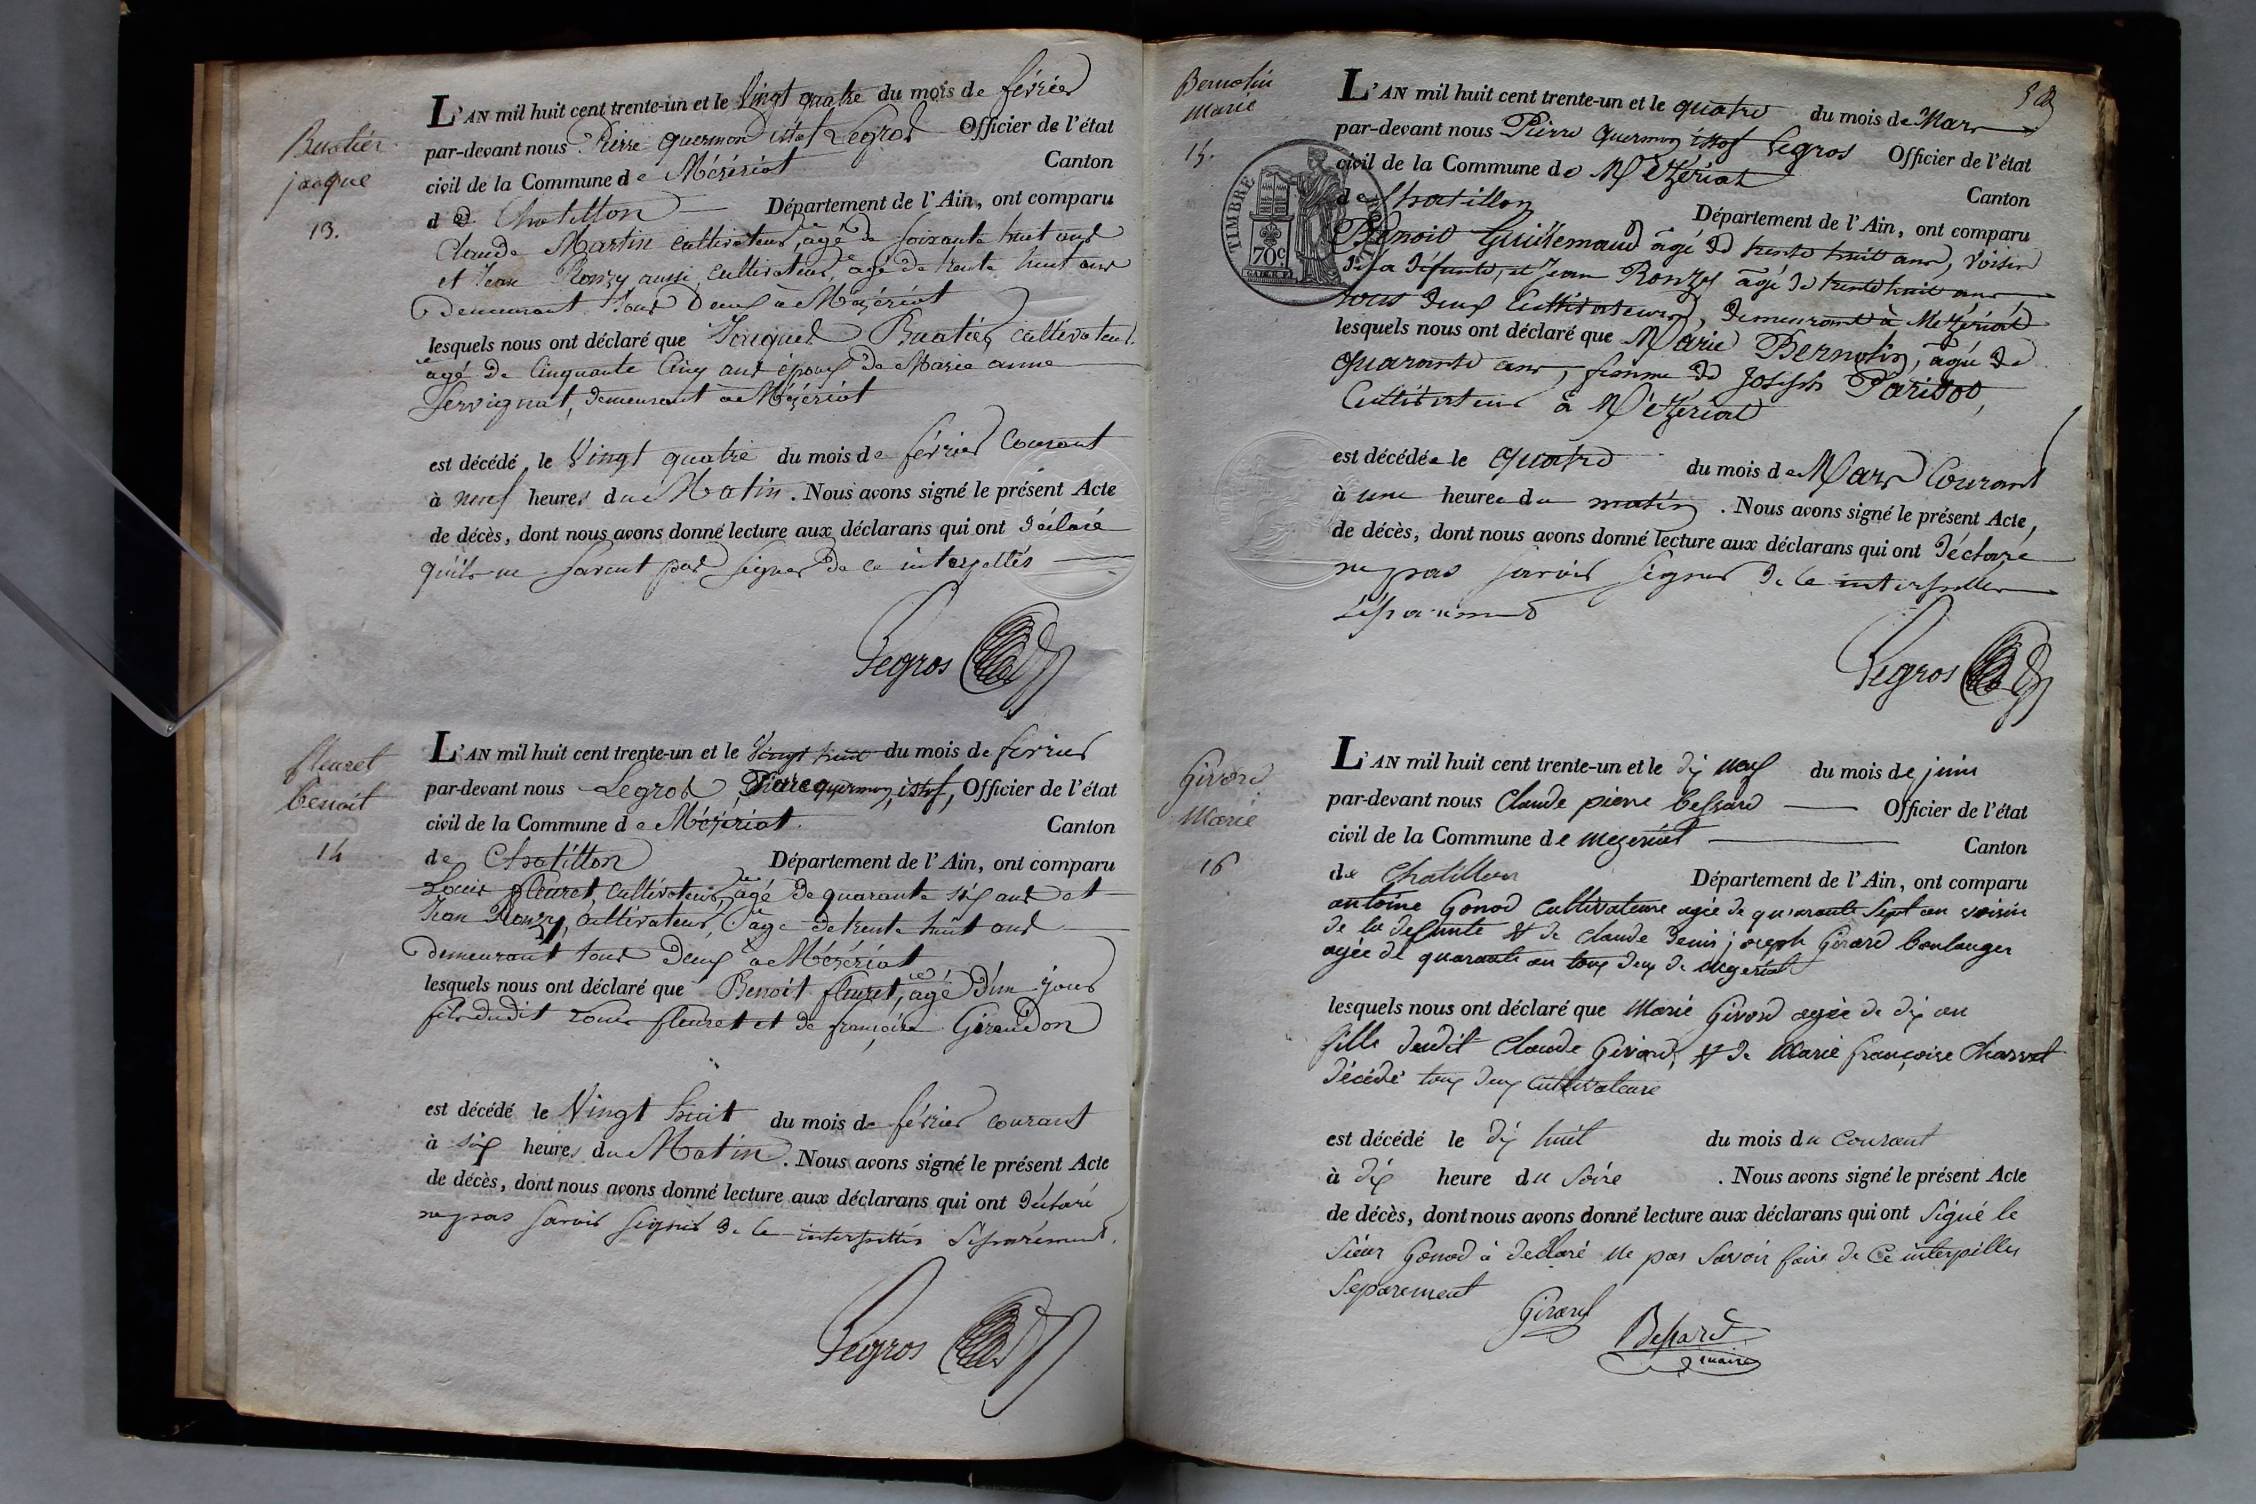 Buatier
jacque
13.
L'AN mil huit cent trente-un et le Vingt quatre du mois de février
par-devant nous Pierre quermon istof Legros Officier de l'état
civil de la Commune de Mézériat Canton
de Chatillon Département de l'Ain, ont comparu
Claude Martin cultivateur, agé de soixante huit ans
et Jean Ronzy aussi cultivateur agé de trente huit ans
demeurant tous deux à Mézériat
lesquels nous ont déclaré que Jacques Buatier, cultivateur
agé de Cinquante Cinq ans époux de Marie anne
Servignat, demeurant à Mézériat
est décédé le Vingt quatre du mois de février Courant
à neuf heures du Matin. Nous avons signé le présent Acte
de décès, dont nous avons donné lecture aux déclarans qui ont déclaré
qu'ils ne savent pas signer de ce interpellés
Legros
fleuret
benoit
14
L'AN mil huit cent trente-un et le Vingt huit du mois de février
par-devant nous Legros, Pierre quermon, istof, Officier de l'état
civil de la Commune de Mézériat. Canton
de Chatillon Département de l'Ain, ont comparu
Louis fleuret, cultivateur, agé de quarante six ans et
Jean Ronzy, cultivateur, agé de trente huit ans
demeurant tous deux à Mézériat
lesquels nous ont déclaré que Benoit fleuret, agé d'un jour
fils dudit Louis fleuret et de françoise Giraudon
est décédé le Vingt huit du mois de février courant
à six heures du Matin. Nous avons signé le présent Acte
de décès, dont nous avons donné lecture aux déclarans qui ont déclaré
ne pas savoir signer de ce interpellés séparément.
Legros
Bernolin
Marie
15.
TIMBRE
70c
L'AN mil huit cent trente-un et le quatre du mois de Mars
par-devant nous Pierre quermon istof Legros Officier de l'état
civil de la Commune de Mézériat Canton
de Chatillon Département de l'Ain, ont comparu
Benoit Guillemaud âgé de trente huit ans, voisin
de la défunte, et Jean Ronzy âgé de trente huit ans
tous deux Cultivateurs, demeurant à Mézériat
lesquels nous ont déclaré que Marie Bernolin, âgée de
quarante ans, femme de Joseph Parisot,
Cultivateur à Mézériat
est décédée le quatre du mois de Mars Courant
à une heure du matin. Nous avons signé le présent Acte,
de décès, dont nous avons donné lecture aux déclarans qui ont déclaré
ne pas savoir signer de ce interpellés
séparément
Legros
Girard
Marie
16
L'AN mil huit cent trente-un et le dix neuf du mois de juin
par-devant nous Claude pierre bessard Officier de l'état
civil de la Commune de mezeriat Canton
de Chatillon Département de l'Ain, ont comparu
antoine Gonod cultivateure agée de quarante Sept an voisin
de la defunte & de claude denis joseph Girard boulanger
agée de quarante an tous deux de mezeriat
lesquels nous ont déclaré que Marie Girard agée de dix an
fille dudit claude Girard, & de Marie françoise Charvet
décédé tous deux cultivateure
est décédé le dix huit du mois du courant
à dix heure du soire. Nous avons signé le présent Acte
de décès, dont nous avons donné lecture aux déclarans qui ont signé le
sieur Gonod à déclaré ne pas savoir faire de ce interpelles
separement
Girard
Bessard
maire